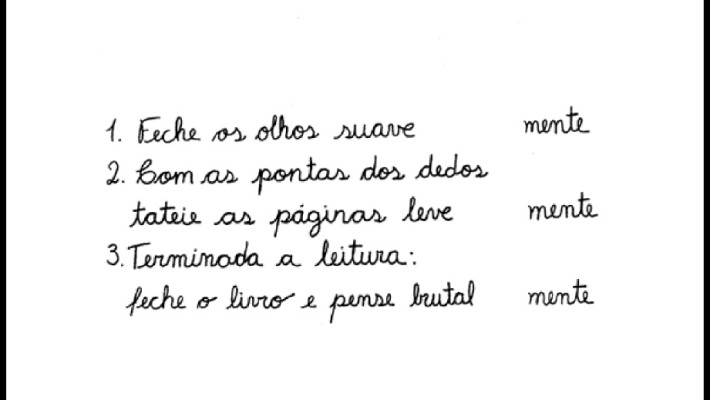 1. Feche os olhos suave mente
2. Com as pontas dos dedos
tateie as páginas leve mente
3. Terminada a leitura:
feche o livro e pense brutal mente